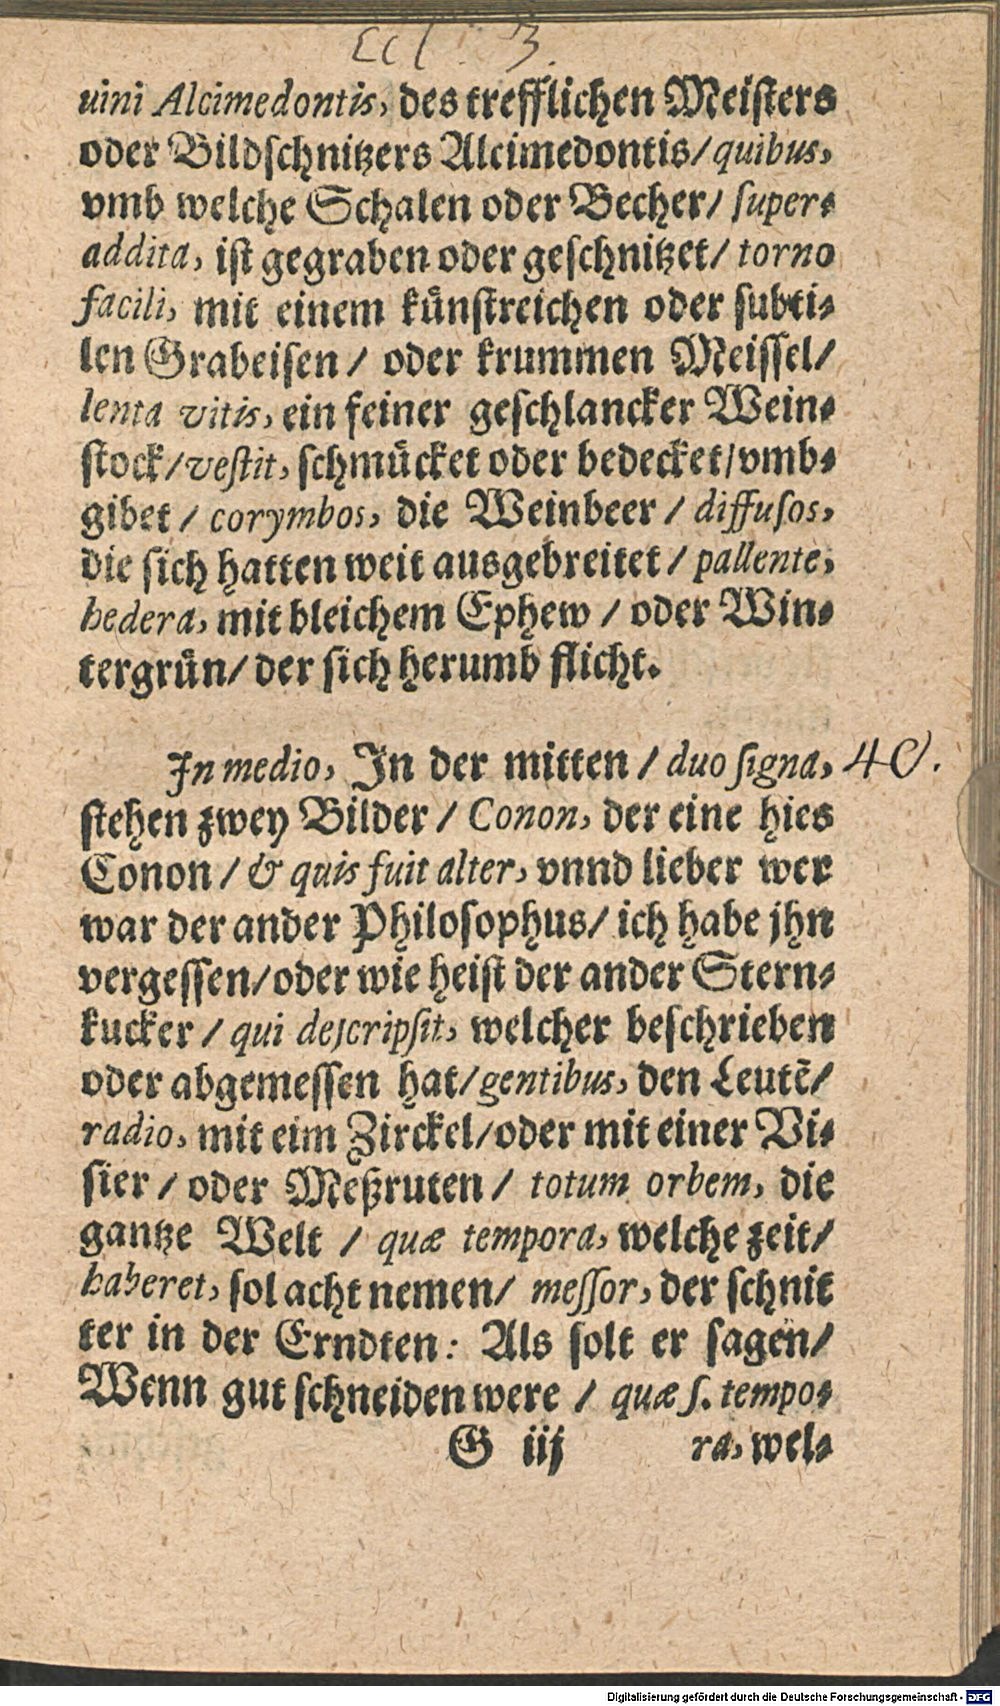 Ecl. 3.
uini Alcimedontis, des trefflichen Meisters
oder Bildschnitzers Alcimedontis/ quibus,
vmb welche Schalen oder Becher/ super-
addita, ist gegraben oder geschnitzet/ torno
facili, mit einem künstreichen oder subti-
len Grabeisen/ oder krummen Meissel/
lenta vitis, ein feiner geschlancker Wein-
stock/ vestit, schmücket oder bedecket/ vmb-
gibet/ corymbos, die Weinbeer/ diffusos,
die sich hatten weit ausgebreitet/ pallente,
hedera, mit bleichem Ephew/ oder Win-
tergrün/ der sich herumb flicht.
In medio, In der mitten/ duo signa, 40.
stehen zwey Bilder/ Conon, der eine hies
Conon/ & quis fuit alter, vnnd lieber wer
war der ander Philosophus/ ich habe jhn
vergessen/ oder wie heist der ander Stern-
kucker/ qui descripsit, welcher beschrieben
oder abgemessen hat/ gentibus, den Leutẽ/
radio, mit eim Zirckel/ oder mit einer Vi-
sier/ oder Meßruten/ totum orbem, die
gantze Welt/ quæ tempora, welche zeit/
haberet, sol acht nemen/ messor, der schnit
ter in der Erndten: Als solt er sagen/
Wenn gut schneiden were/ quæ s. tempo-
G iij ra, wel-
Digitalisierung gefördert durch die Deutsche Forschungsgemeinschaft - DFG